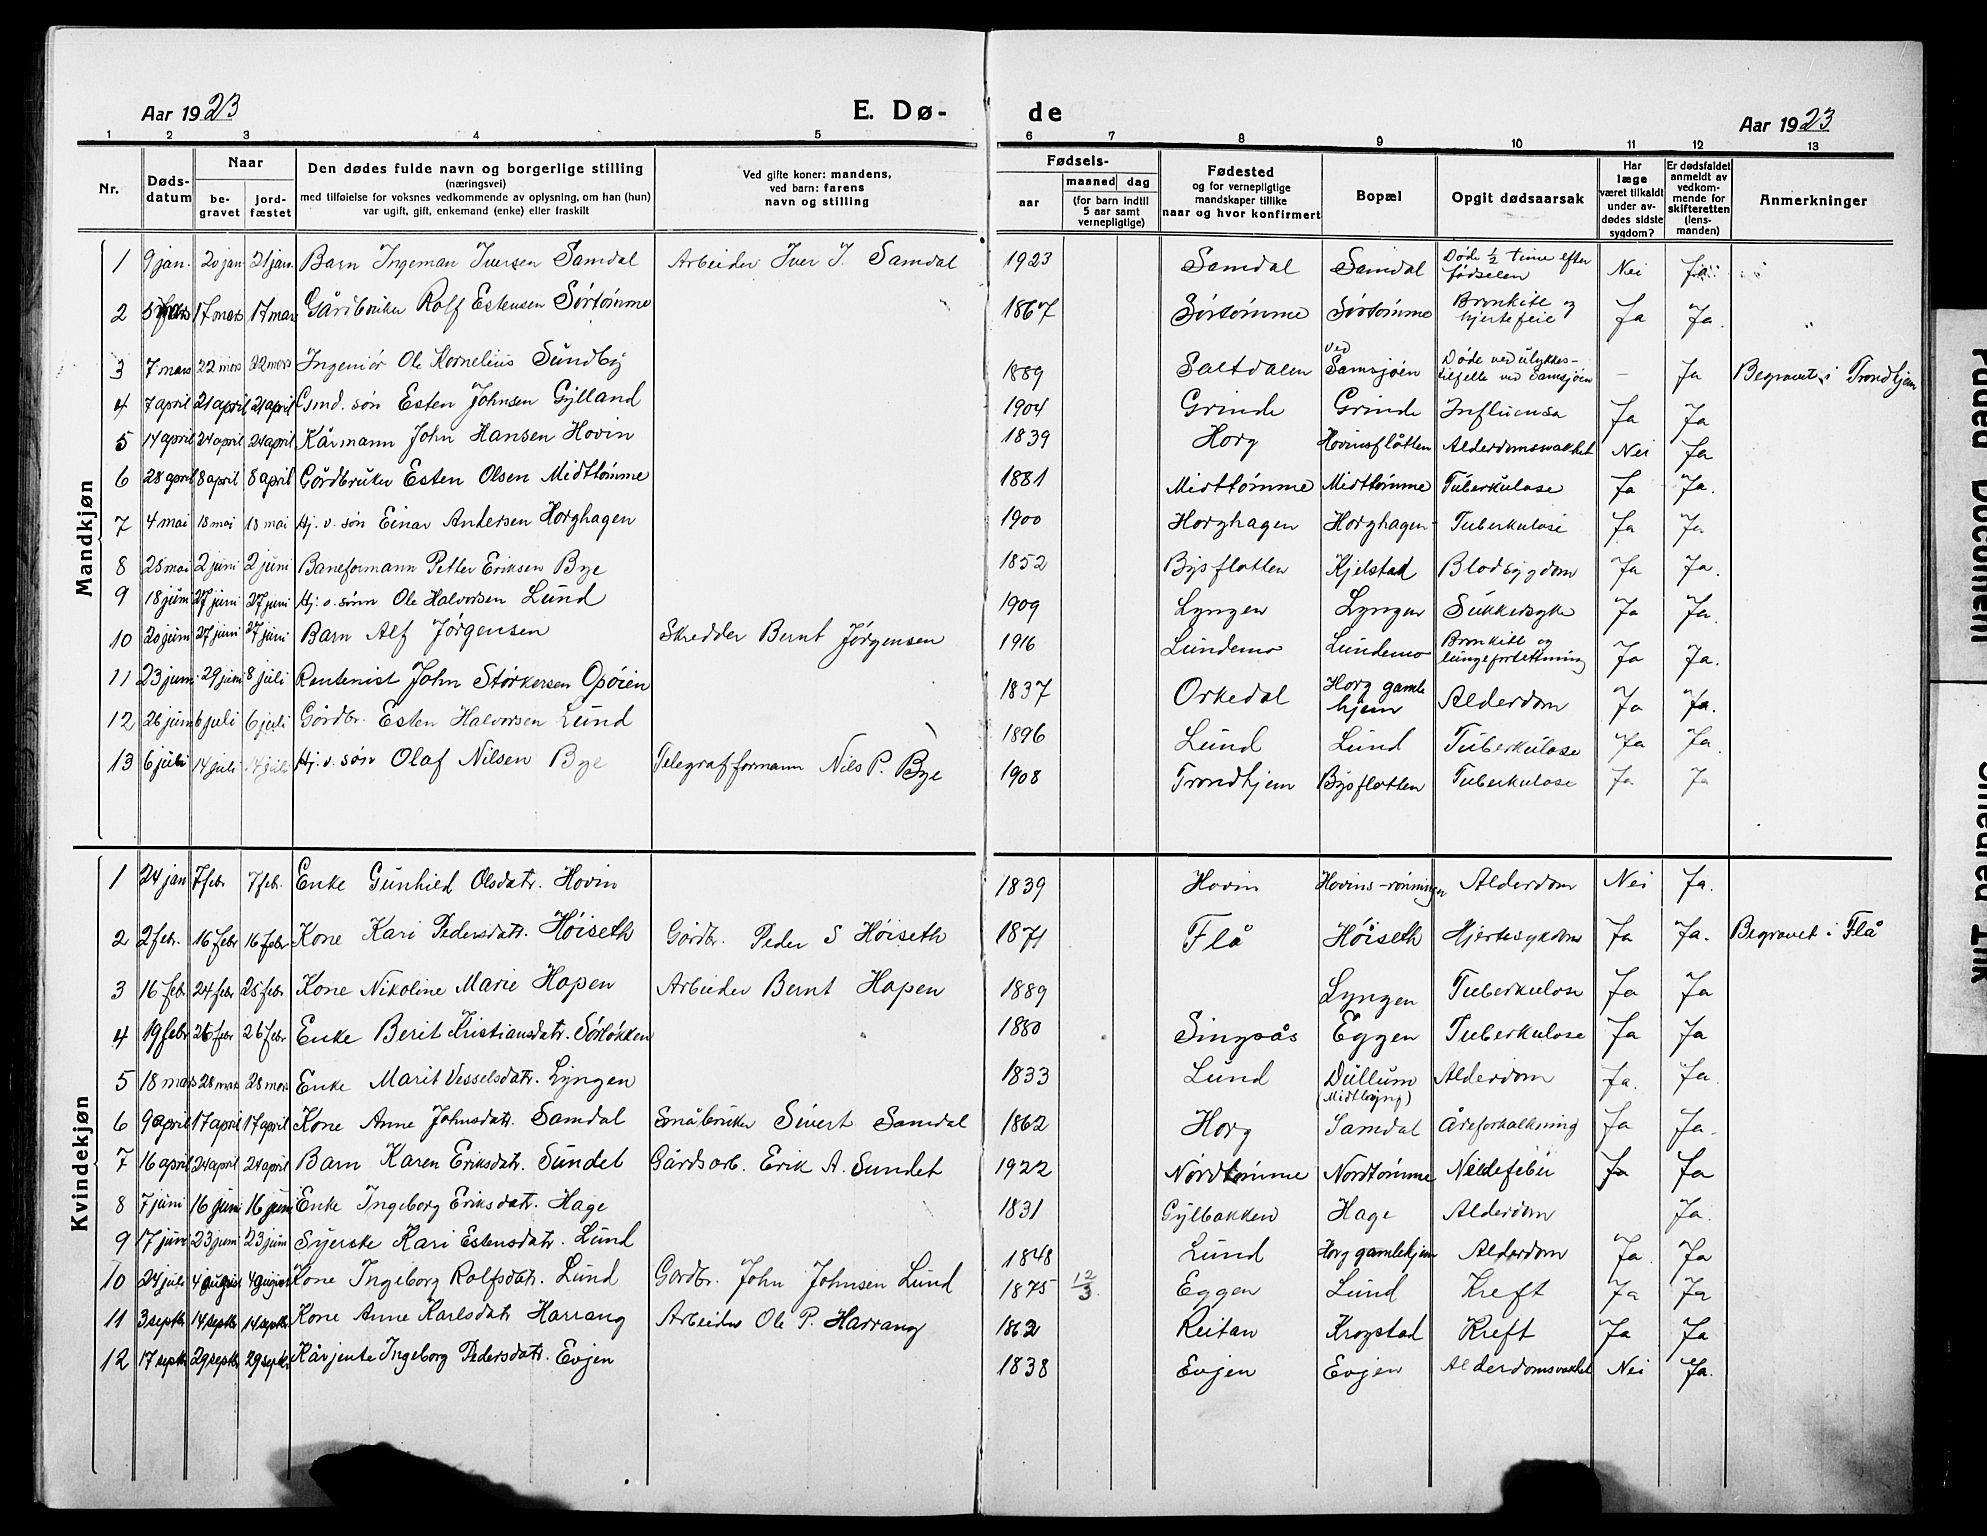 Aar 1923 E. Dø- de Aar 1923
1 2 3 4 5 6 7 8 9 10 11 12 13
Nr. | Døds-datum | Naar begravet | jordfæstet | Den dødes fulde navn og borgerlige stilling (næringsvei) med tilføielse for voksnes vedkommende av oplysning, om han (hun) var ugift, gift, enkemand (enke) eller fraskilt | Ved gifte koner: mandens, ved barn: farens navn og stilling | Fødsels- aar | maaned dag (for barn indtil 5 aar samt vernepligtige) | Fødested og for vernepligtige mandskaper tillike naar og hvor konfirmert | Bopæl | Opgit dødsaarsak | Har læge været tilkaldt under avdødes sidste sygdom? | Er dødsfaldet anmeldt av vedkommende for skifteretten (lensmanden) | Anmerkninger
Mandkjøn
1 9 jan. 20 jan 21 jan. Barn Ingeman Iversen Samdal Arbeider Iver J. Samdal 1923 Samdal Samdal Døde ½ time efter fødselen Nei Ja
2 5 mars 17 mars 17 mars Gårdbruker Rolf Estensen Sørtømme 1867 Sørtømme Sørtømme Bronkitt og hjertefeil Ja Ja.
3 7 mars 22 mars 22 mars Ingeniør Ole Kornelius Sundby 1889 Saltdalen ved Samsjøen Døde ved ulykkes-tilfelle ved Samsjøen — Ja Begravet i Trondhjem
4 7 april 21 april 21 april Gmd. søn Esten Johnsen Gylland 1904 Grinde Grinde Influensa Ja Ja
5 14 april 24 april 24 april Kårmann John Hansen Hovin 1839 Horg Hovinsflåtten Alderdomsvakhet Nei Ja
6 28 april 8 april 8 april Gårdbruker Esten Olsen Midttømme 1881 Midttømme Midttømme Tuberkulose Ja Ja.
7 4 mai 18 mai 18 mai Hj. v. søn Einar Andersen Horghagen 1900 Horghagen Horghagen Tuberkulose Ja Ja
8 25 mai 2 juni 2 juni Baneformann Petter Eriksen Bye 1852 Bysflotten Kjelstad Blodsygdom Ja Ja.
9 18 juni 27 juni 27 juni Hj. v. sønn Ole Halvorsen Lund 1909 Lyngen Lyngen Sukkersyke Ja Ja.
10 20 juni 27 juni 27 juni Barn Alf Jørgensen Skredder Bernt Jørgensen 1916 Lundemo Lundemo Bronkitt og lungefortettning Ja Ja.
11 23 juni 29 juni 8 juli Rentenist John Størkersen Opøien 1837 Orkedal Horg gamlehjem Alderdom Ja Ja.
12 26 juni 6 juli 6 juli Gårdbr. Esten Halvorsen Lund 1896 Lund Lund Tuberkulose Ja Ja.
13 6 juli 14 juli 14 juli Hj. v. søn Olaf Nilsen Bye Telegrafformann Nils P. Bye 1908 Trondhjem Bysflotten Tuberkulose Ja Ja
Kvindekjøn
1 24 jan 7 febr 7 febr. Enke Gunhild Olsdatr. Hovin 1839 Hovin Hovins-rønningen Alderdom Nei Ja.
2 2 febr. 16 febr 16 febr Kone Kari Pedersdatr. Høiseth Gårdbr. Peder S Høiseth 1871 Flå Høiseth Hjertesykdom Ja Ja. Begravet i Flå
3 16 febr 24 febr 25 febr Kone Nikoline Marie Hapen Arbeider Bernt Hapen 1889 Lyngen Tuberkulose Ja Ja
4 19 febr 26 febr 26 febr Enke Berit Kristiansdatr. Sørløkken 1880 Singsås Eggen Tuberkulose Ja Ja
5 18 mars 28 mars 28 mars Enke Marit Vesselsdatr. Lyngen 1833 Lund Dullum Alderdom Ja. Ja.
6 9 april 17 april 17 april Kone Anne Johnsdatr. Samdal Småbruker Sivert Samdal 1862 Horg Samdal Åreforkalkning Ja Ja.
7 16 april 24 april 24 april Barn Karen Eriksdatr. Sundet Gårdsarb. Erik A. Sundet 1922 Nordtømme Nordtømme Neldefeber Ja Ja
8 7 juni 16 juni 16 juni Enke Ingeborg Eriksdatr. Hage 1831 Gylbakken Hage Alderdom Ja.
9 17 juni 23 juni 23 juni Syerske Kari Estensdatr. Lund 1848 Lund Horg gamlehjem Alderdom Ja. Ja
10 24 juli 4 august 4 august Kone Ingeborg Rolfsdatr. Lund Gårdbr. John Johnsen Lund 1875 12/3. Eggen Lund Kreft Ja Ja
11 3 septb 14 septb 14 septb Kone Anne Karlsdatr Harrang Arbeider Ole P. Harrang 1862 Reitan Krogstad Kreft Ja Ja
12 17 septb 29 septb 29 septb. Kårjente Ingeborg Pedersdatr. Evjen 1838 Evjen Evjen Alderdomsvakhet Nei Ja.
Faded Document
Smeared Ink